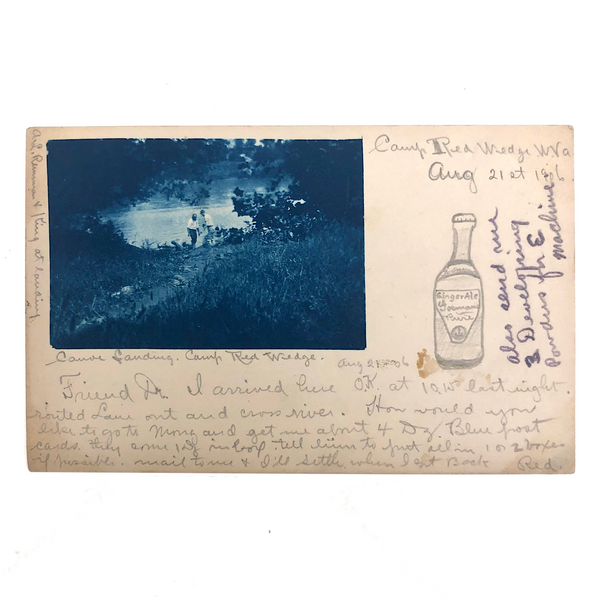 Camp Red Wedge W Va
Aug 21st 1906
Ginger Ale
Pure
also send me
3 Developing
Powders for E
machine
& King at Landing
Canoe Landing. Camp Red Wedge.
Aug 21 - 06
Friend Dr. I arrived here O.K. at 10, last night.
routed Lane out and cross river. How would you
like to go to and get me about 4 Dz Blue post
cards. they come 1 Dz in tell him to put all in 1 or 2 boxes
if possible. mail to me & I'll settle when I get Back Red.